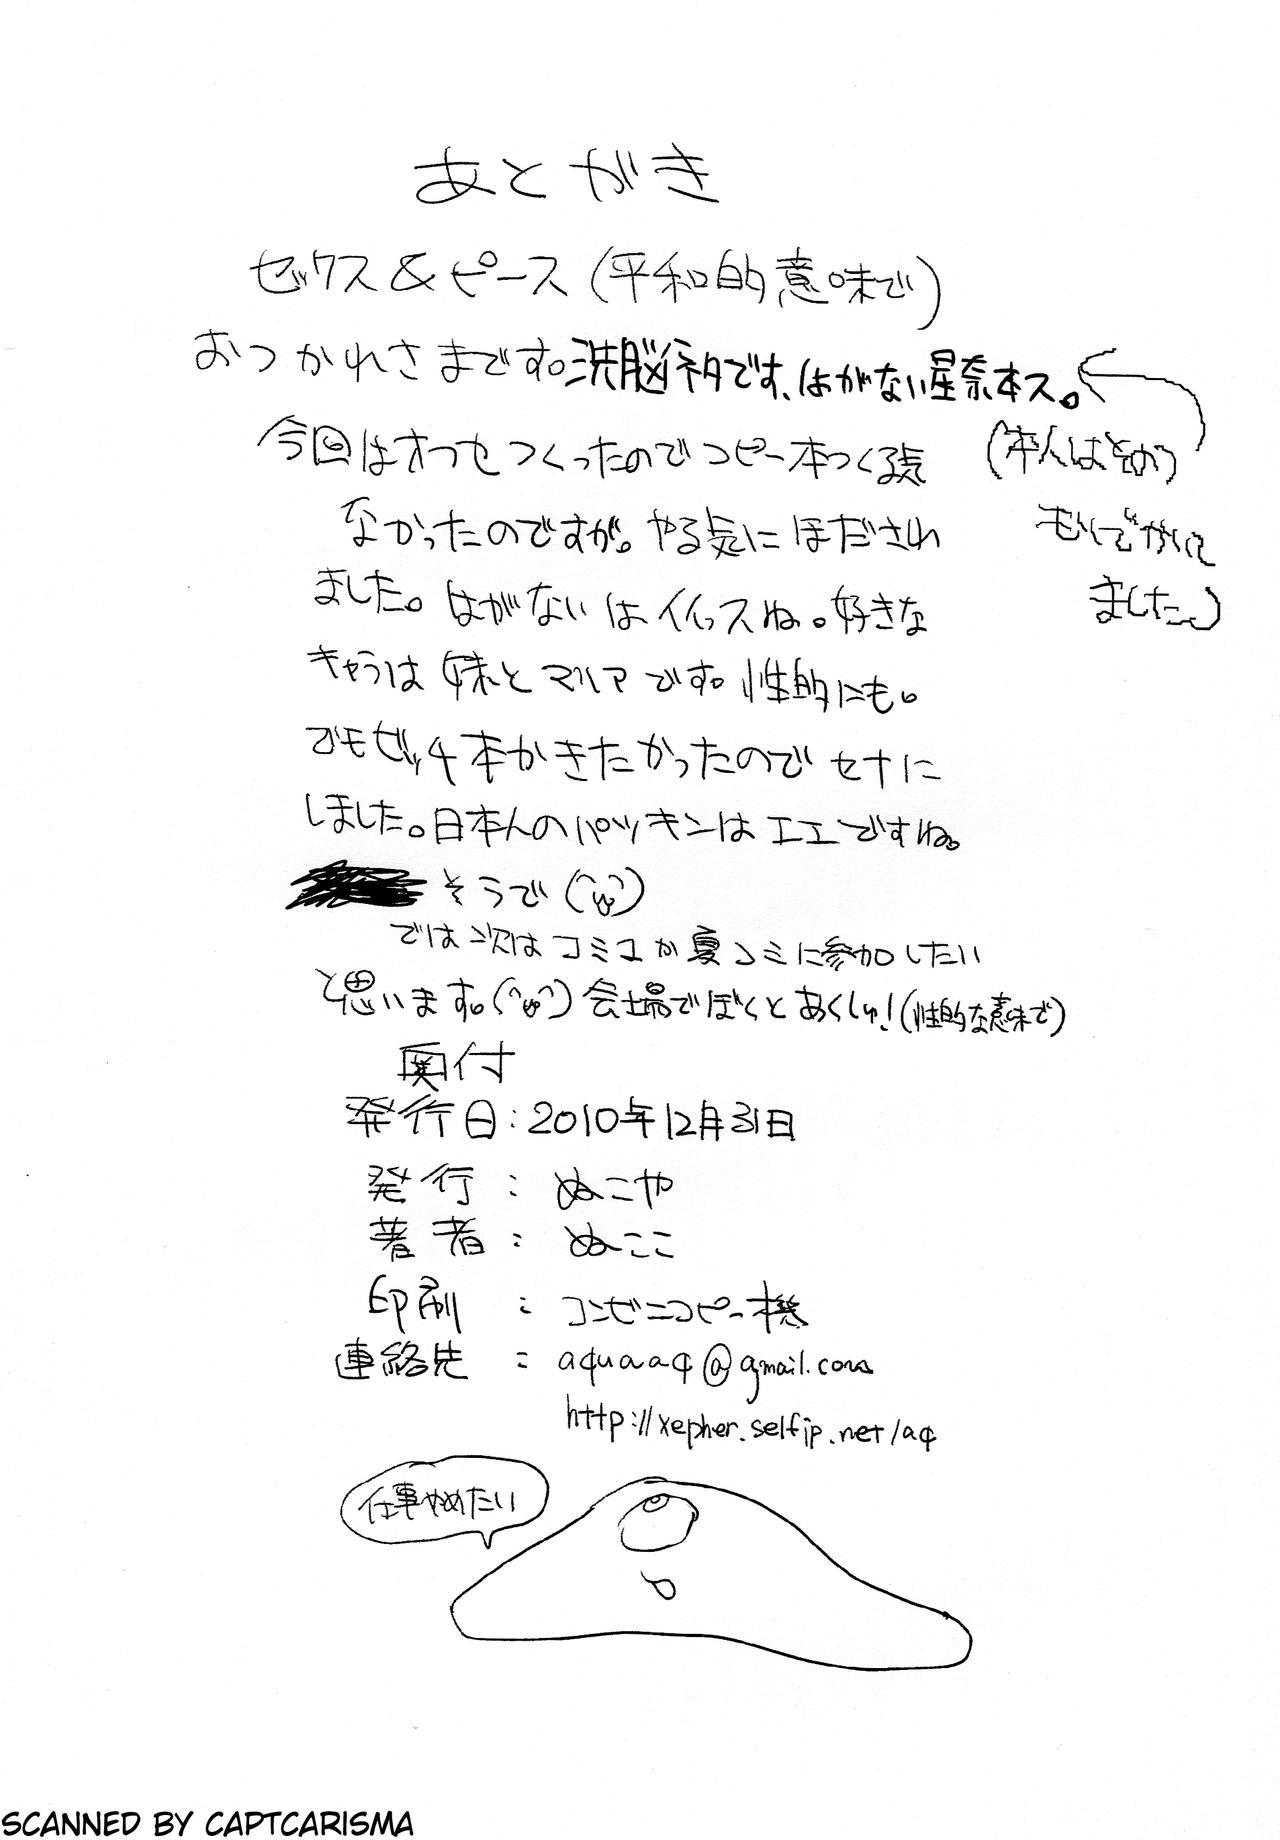 あとがき
セックス&ピース(平和的意味で)
おつかれさまです。洗脳ネタです、はがない星奈本ス。
(本人はその
つもりでかいて
ました。)
今回はオフセつくったのでコピー本つくる気
なかったのですが。やる気にほだされ
ました。はがないはイイっスね。好きな
キャラは妹とマリアです。性的にも。
でもビッチ本かきたかったのでセナに
しました。日本人のパツキンはエエですね。
そうで
では次はコミコか夏コミに参加したい
と思います。会場でぼくとあくしゅ!(性的な意味で)
奥付
発行日:2010年12月31日
発行:ぬこや
著者:ぬここ
印刷:コンビニコピー機
連絡先:aquaaq@gmail.com
http://xepher.selfip.net/aq
仕事やめたい
SCANNED BY CAPTCARISMA